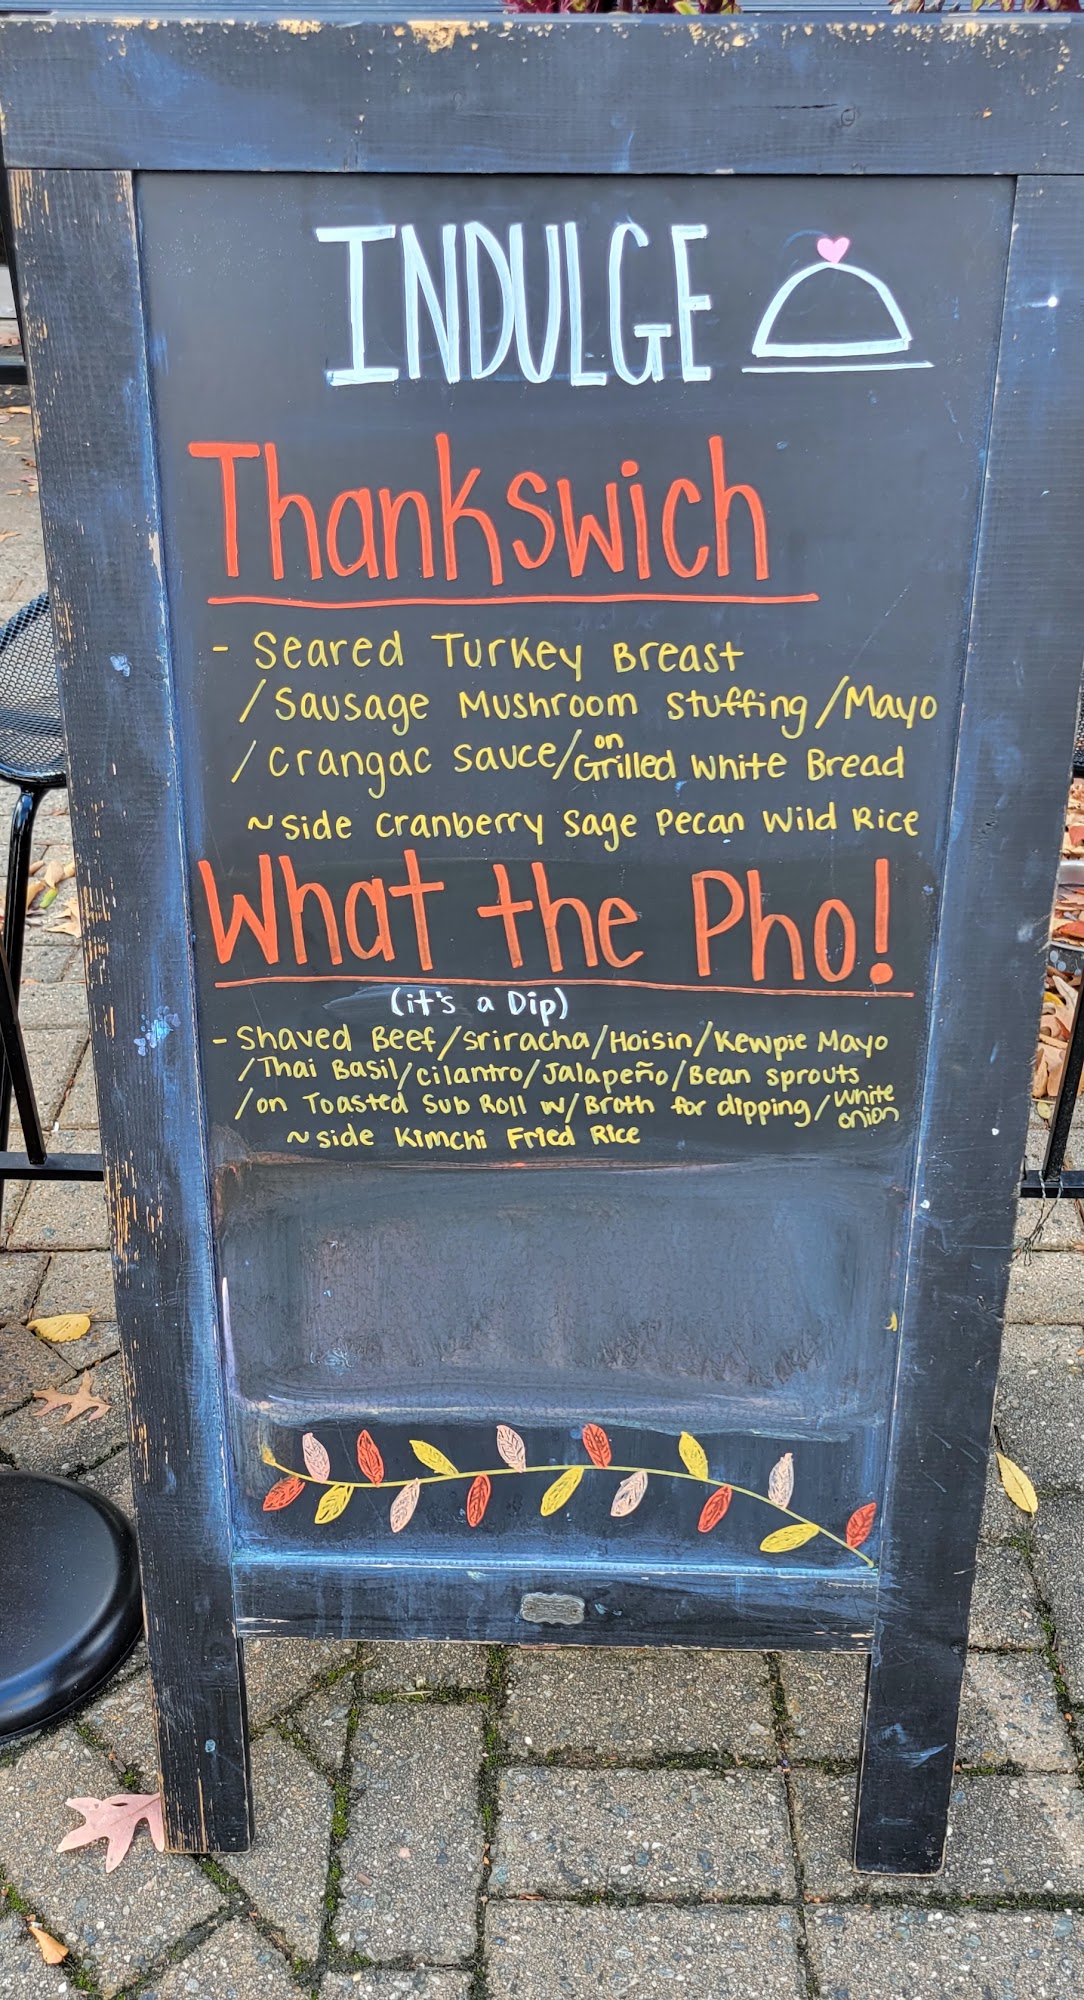 INDULGE
Thankswich
- Seared Turkey Breast
/Sausage Mushroom Stuffing/Mayo
/Crangac Sauce/on Grilled White Bread
~side Cranberry Sage Pecan Wild Rice
What the Pho!
(it's a Dip)
- Shaved Beef/Sriracha/Hoisin/Kewpie Mayo
/Thai Basil/cilantro/Jalapeño/Bean sprouts
/on Toasted Sub Roll w/ Broth for dipping/White onion
~side Kimchi Fried Rice